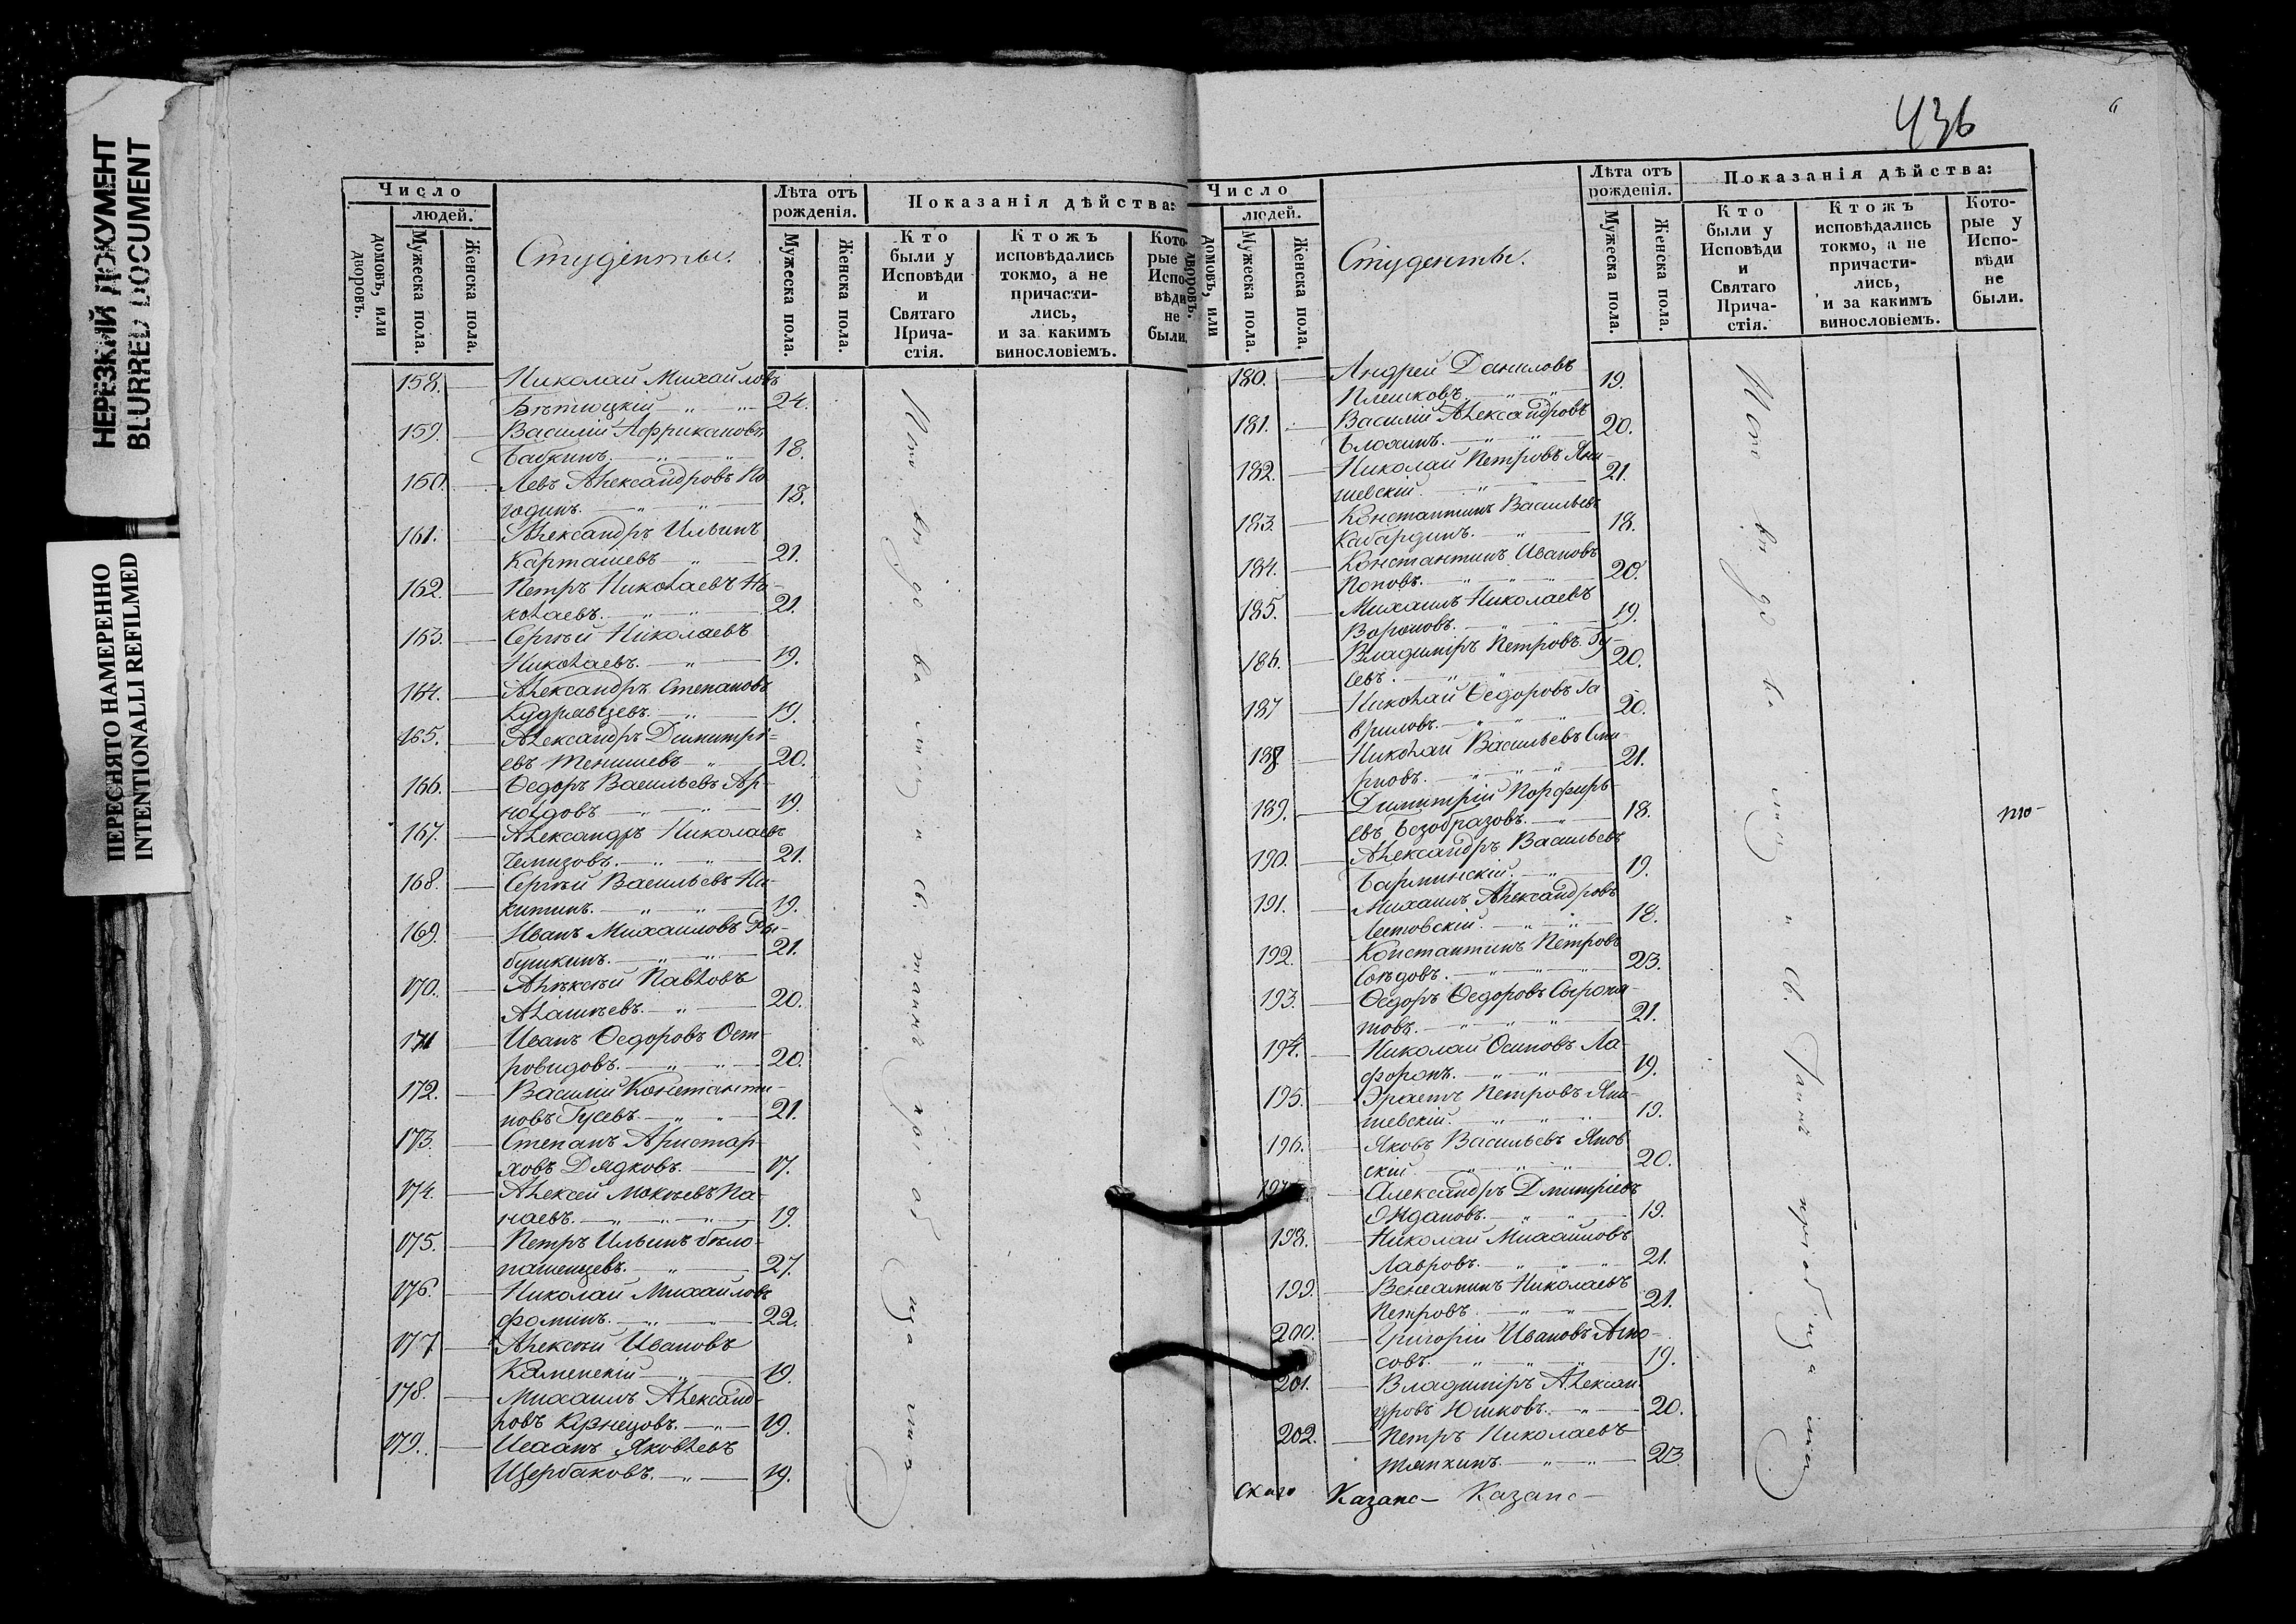 НЕРЕЗКИЙ ДОКУМЕНТ
BLURRED DOCUMENT
ПЕРЕСНЯТО НАМЕРЕННО
INTENTIONALLI REFILMED
Число
людей.
домовъ, или дворовъ.
Мужеска пола.
Женска пола.
Студенты.
Лѣта отъ рожденія.
Мужеска пола.
Женска пола.
Показанія дѣйства:
Кто были у Исповѣди и Святаго Причастія.
Ктожъ исповѣдались токмо, а не причастились, и за какимъ винословіемъ.
158. Николай Михайловъ
24.
159. Василій Африкановъ
Бабкинъ. 18.
160. Левъ Александровъ По
годинъ. 18.
161. Александръ Ильинъ
Карташевъ 21.
162. Петръ Николаевъ Ни-
колаевъ. 21.
163. Сергѣй Николаевъ
Николаевъ. 19.
164. Александръ Степановъ
Кудрявцевъ. 19.
165. Александръ Димитрі-
евъ Тенишевъ 20.
166. Ѳедоръ Васильевъ Ар-
нольдовъ 19.
167. Александръ Николаевъ
21.
168. Сергѣй Васильевъ Ни-
китинъ. 19.
169. Иванъ Михаиловъ Ры-
бушкинъ. 21.
170. Алексѣй Павловъ
20.
171 Иванъ Ѳедоровъ Ост-
ровидовъ. 20.
172. Василій Константи-
новъ Гусевъ. 21.
173. Степанъ Аристар-
ховъ Дядковъ. 17.
174. Алексѣй Мокѣевъ Па-
наевъ. 19.
175. Петръ Ильинъ Бѣло-
пашенцевъ. 27.
176. Николай Михайловъ
Фоминъ. 22.
177 Алексѣй Ивановъ
Каменскій 19.
178. Михаилъ Александ-
ровъ Кузнецовъ. 19.
179. Яковлевъ
Щербаковъ. 19.
436
Число
людей.
домовъ, или дворовъ.
Мужеска пола.
Женска пола.
Студенты.
Лѣта отъ рожденія.
Мужеска пола.
Женска пола.
Показанія дѣйства:
Кто были у Исповѣди и Святаго Причастія.
Ктожъ исповѣдались токмо, а не причастились, и за какимъ винословіемъ.
Которые у Исповѣди не были.
180. Андрей Даниловъ
Плешковъ. 19.
181. Василій Александровъ
Блохинъ. 20.
182. Николай Петровъ Яни-
шевскій. 21.
183. Константинъ Васильевъ
Кабардинъ. 18.
184. Константинъ Ивановъ
Поповъ. 20.
185. Михаилъ Николаевъ
Вороновъ. 19.
186. Владиміръ Петровъ Гу-
севъ. 20.
187 Николай Ѳедоровъ Га
вриловъ. 20.
188 Николай Васильевъ Сми-
рновъ. 21.
189. Димитрій Порфирь-
евъ Безобразовъ. 18.
190. Александръ Васильевъ
Барминскій. 19.
191. Михаилъ Александровъ
18.
192. Константинъ Петровъ
23.
193. Ѳедоръ Ѳедоровъ Сыромя-
товъ. 21.
194. Николай Осиповъ Ла-
форонъ. 19.
195. Эрастъ Петровъ Яни-
шевскій. 19.
196. Яковъ Васильевъ Янов
скій 20.
Александръ Дмитріевъ
19.
198. Николай Михаиловъ
Лавровъ. 21.
199. Веніаминъ Николаевъ
Петровъ. 21.
200. Григорій Ивановъ
19.
201. Владиміръ Алексан
дровъ Юшковъ. 20.
202. Петръ Николаевъ
Тяпкинъ. 23.
скаго Казанс- Казанс-